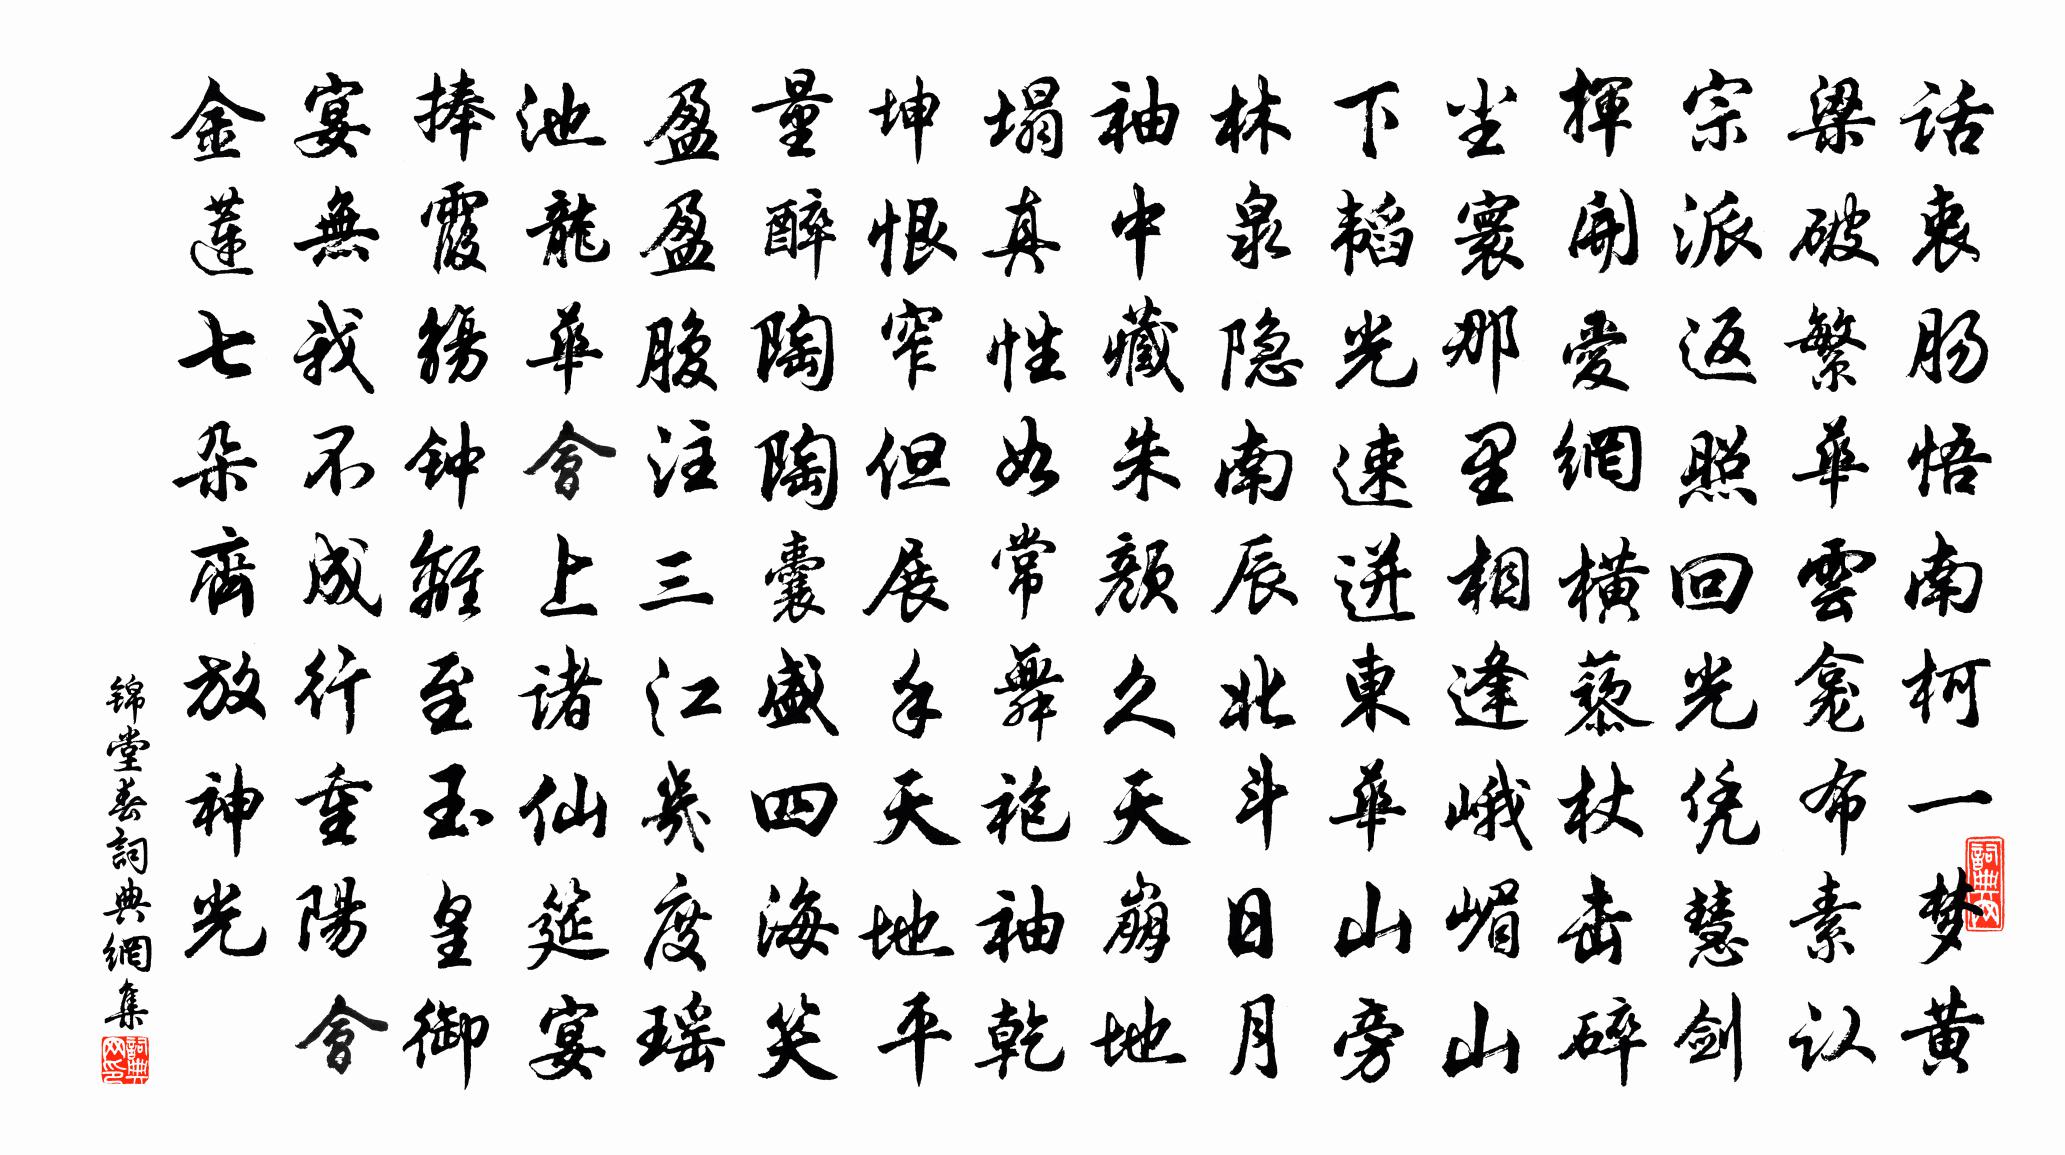 话衷肠悟南柯一梦黄
梁破繁華雲龛布素认
宗派返照回光凭慧剑
揮開愛網橫藜杖击碎
尘寰那里相逢峨嵋山
下韬光速迸東華山旁
林泉隐南辰北斗日月
袖中藏朱颜久天崩地
塌真性如常舞袍袖乾
坤恨窄但展手天地平
量醉陶陶囊盛四海笑
盈盈腹注三江幾度瑶
池龍華會上诸仙筵宴
捧霞觴钟離至玉皇御
宴無我不成行重陽會
金蓮七朵齊放神光
锦堂春詞典網集
詞典网
詞典网印